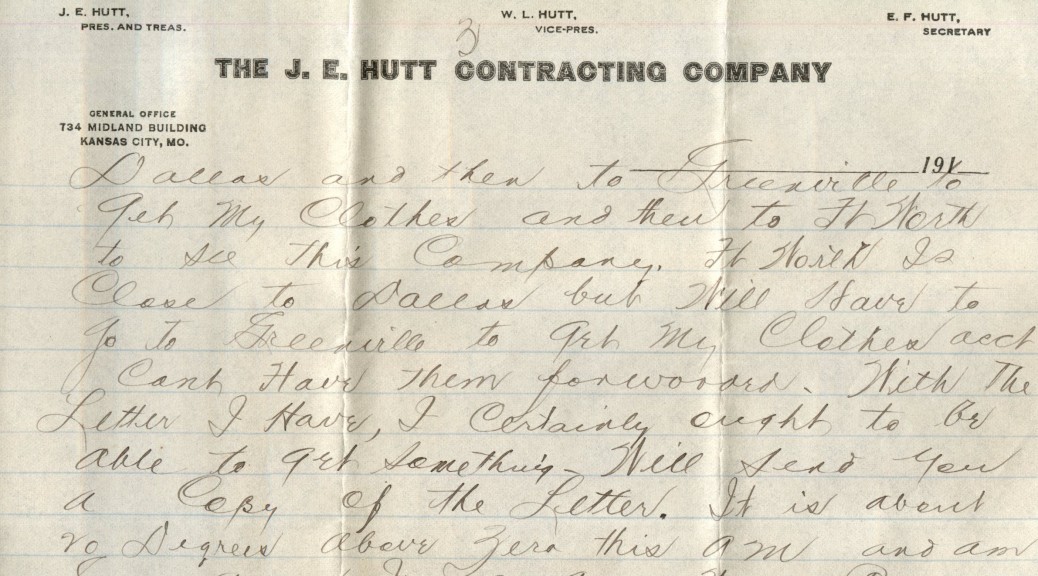 J. E. HUTT,
PRES. AND TREAS.
W. L. HUTT,
VICE-PRES.
E. F. HUTT,
SECRETARY
3
THE J. E. HUTT CONTRACTING COMPANY
GENERAL OFFICE
734 MIDLAND BUILDING
KANSAS CITY, MO.
191
Dallas and then to Greenville to
Get My Clothes and then to Ft Worth
to see this Company. Ft Worth Is
Close to Dallas but Will Have to
go to Greenville to Get My Clothes acct
Cant Have them forwoored. With The
Letter I Have, I Certainly ought to be
able to get something - Will send you
a Copy of the Letter. It is about
20 Degrees above Zero this am and am